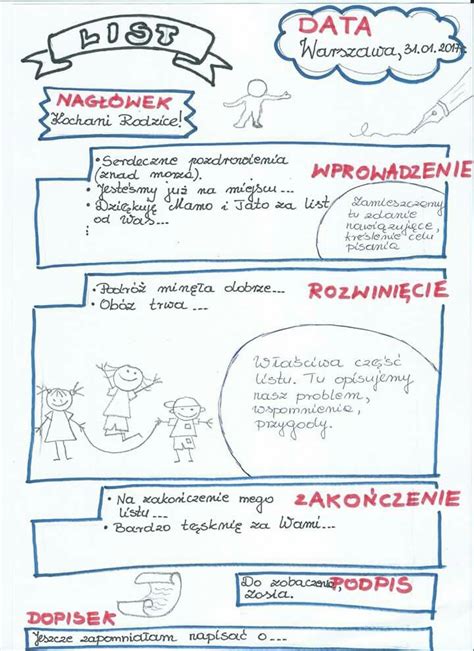 LIST
DATA
Warszawa, 31.01.2017r.
NAGŁÓWEK
Kochani Rodzice!
WPROWADZENIE
• Serdeczne pozdrowienia
(znad morza).
• Jesteśmy już na miejscu...
• Dziękuję Mamo i Tato za list
od Was...
Zamieszczamy
tu zdanie
nawiązujące,
kreślenie celu
pisania
ROZWINIĘCIE
• Podróż minęła dobrze...
• Obóz trwa...
Właściwa część
listu. Tu opisujemy
nasz problem,
wspomnienia,
przygody.
ZAKOŃCZENIE
• Na zakończenie mego
listu...
• Bardzo tęsknię za Wami...
PODPIS
Do zobaczenia,
Zosia.
DOPISEK
Jeszcze zapomniałam napisać o...